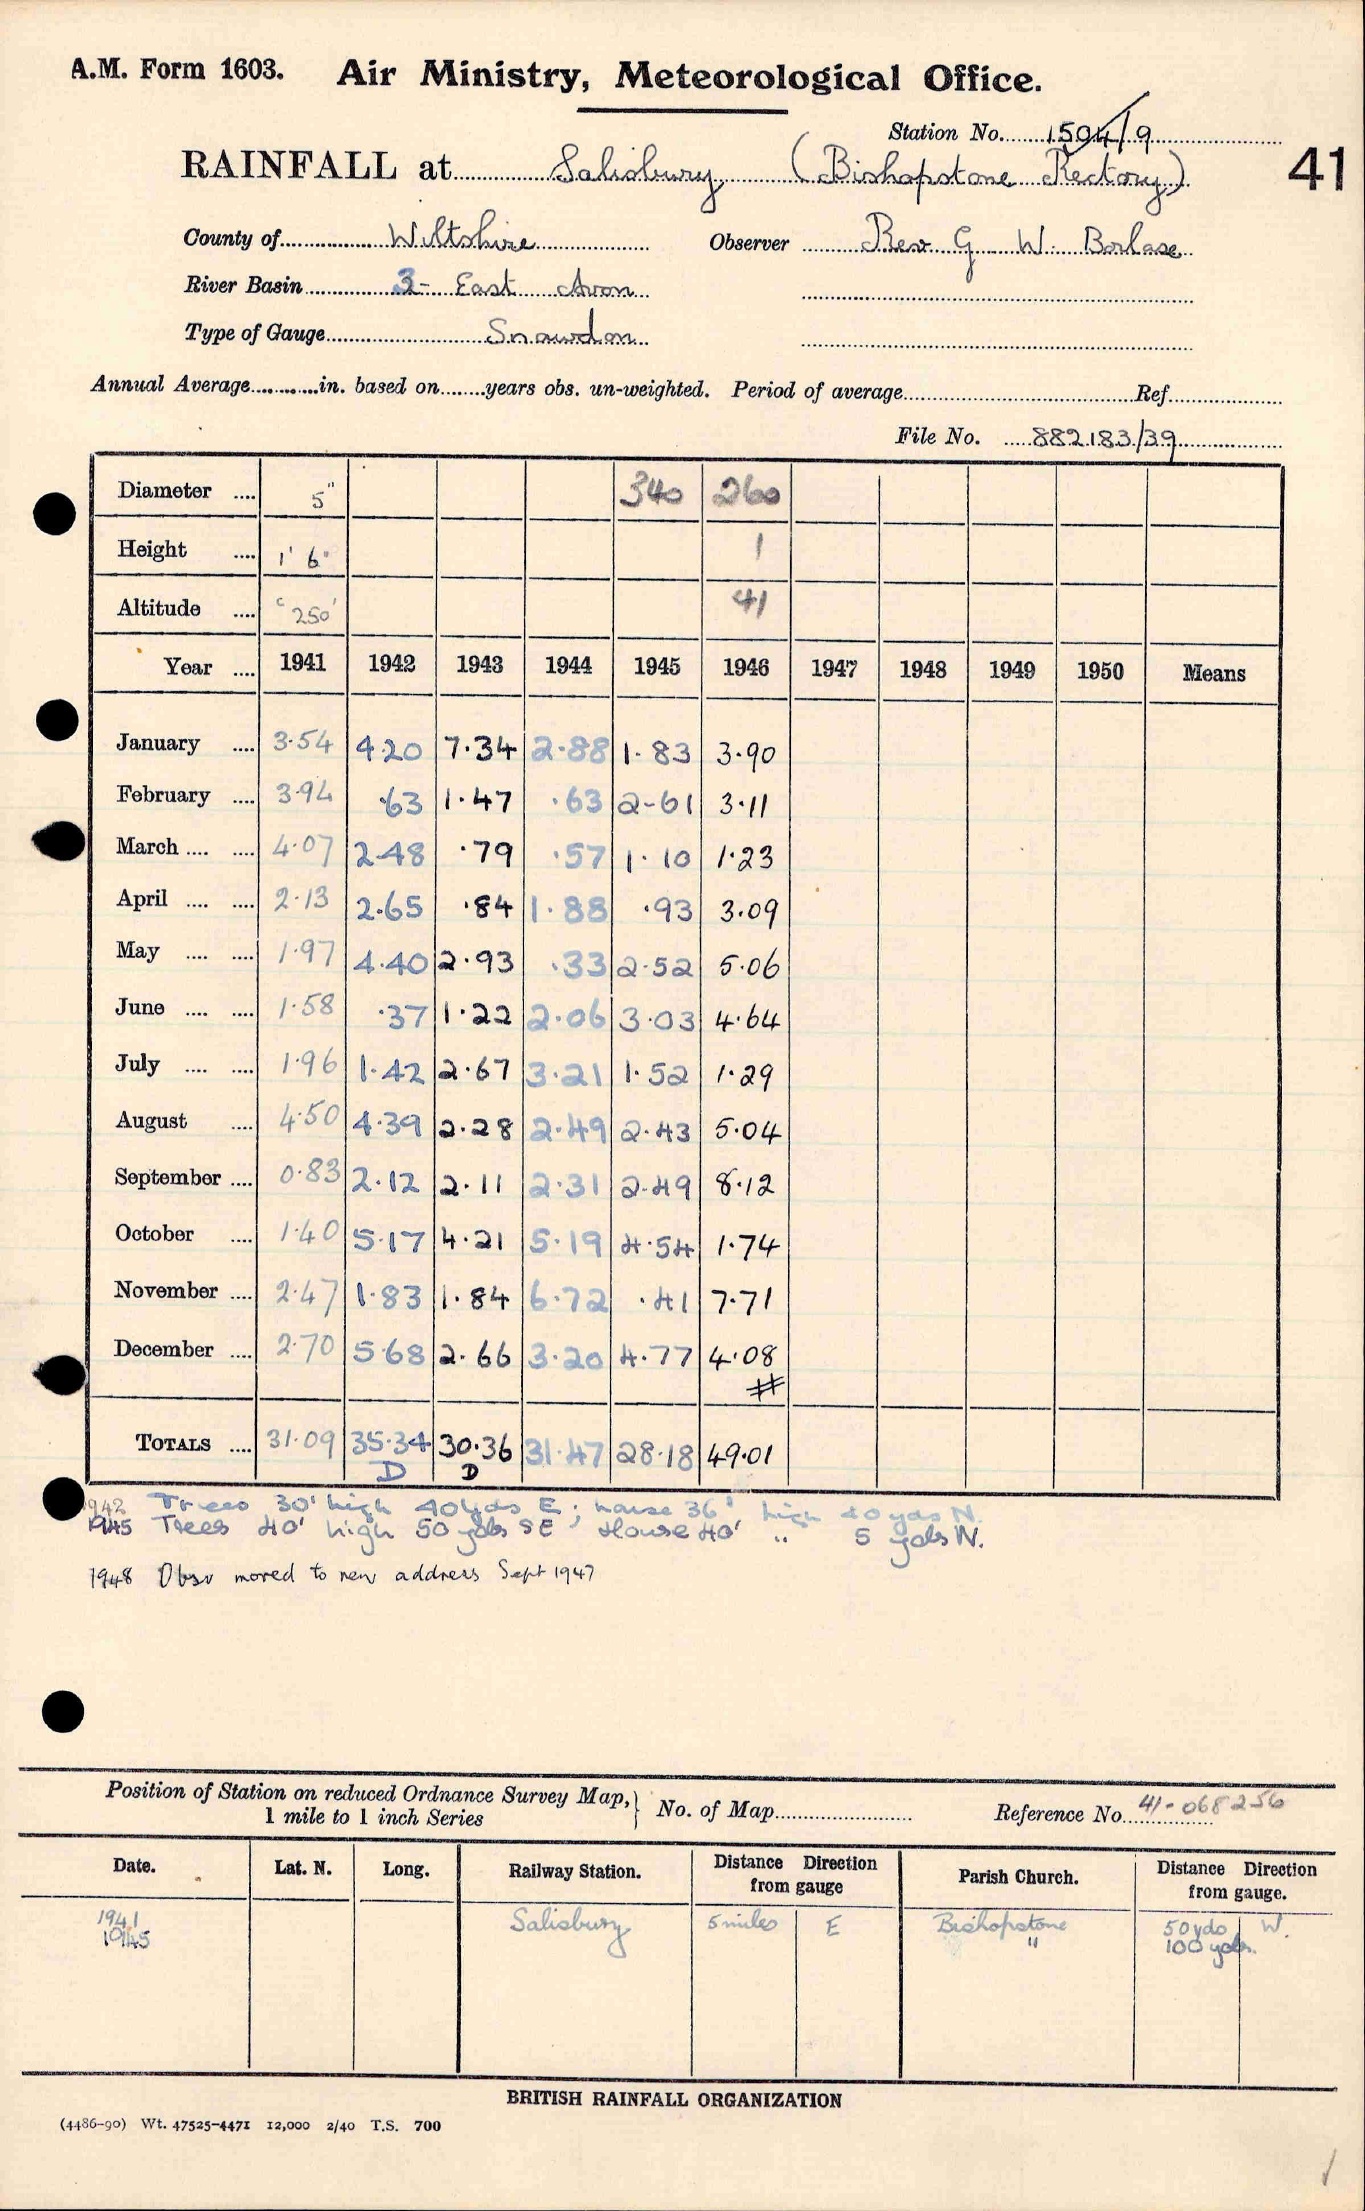 A.M. Form 1603. Air Ministry, Meteorological Office.
Station No. 1504/9
41
RAINFALL at Salisbury (Bishopstone Rectory)
County of Wiltshire Observer Rev G W. Borlase
River Basin 3- East Avon
Type of Gauge Snowdon
Annual Average............in. based on........years obs. un-weighted. Period of average........Ref........
File No. 882183/39
Diameter .... 5" 340 260
Height .... 1' 6" 1
Altitude .... c 250' 41
Year .... 1941 1942 1943 1944 1945 1946 1947 1948 1949 1950 Means
January .... 3.54 4.20 7.34 2.88 1.83 3.90
February .... 3.94 .63 1.47 .63 2-61 3.11
March .... .... 4.07 2.48 .79 .57 1.10 1.23
April .... .... 2.13 2.65 .84 1.88 .93 3.09
May .... .... 1.97 4.40 2.93 .33 2.52 5.06
June .... .... 1.58 .37 1.22 2.06 3.03 4.64
July .... .... 1.96 1.42 2.67 3.21 1.52 1.29
August .... 4.50 4.39 2.28 2.49 2.43 5.04
September .... 0.83 2.12 2.11 2.31 2.49 8.12
October .... 1.40 5.17 4.21 5.19 4.54 1.74
November .... 2.47 1.83 1.84 6.72 .41 7.71
December .... 2.70 5.68 2.66 3.20 4.77 4.08
#
TOTALS .... 31.09 35.34 30.36 31.47 28.18 49.01
D D
1942 Trees 30' high 40yds E; house 36' high 20 yds N.
1945 Trees 40' high 50 yds SE; House 40' " 5 yds N.
1948 Obsr moved to new address Sept 1947
Position of Station on reduced Ordnance Survey Map,
1 mile to 1 inch Series } No. of Map........ Reference No. 41-068256
Date. Lat. N. Long. Railway Station. Distance Direction from gauge Parish Church. Distance Direction from gauge.
1941 Salisbury 5 miles E Bishopstone 50 yds W.
1945 " 100 yds.
BRITISH RAINFALL ORGANIZATION
(4486-90) Wt. 47525-4471 12,000 2/40 T.S. 700